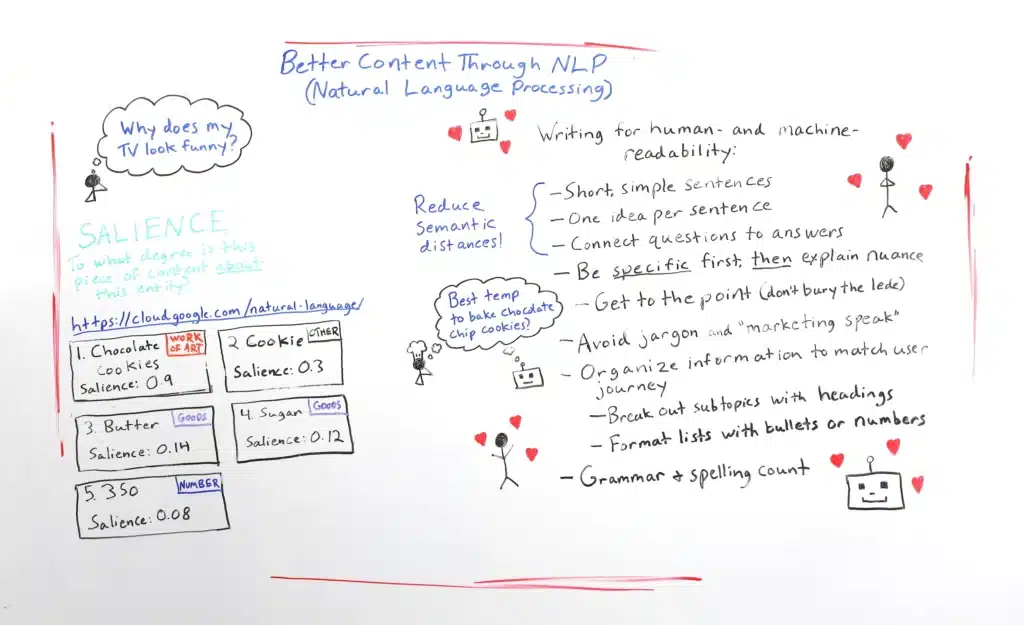 Better Content Through NLP
(Natural Language Processing)
Why does my
TV look funny?
SALIENCE
To what degree is this
piece of content about
this entity?
https://cloud.google.com/natural-language/
1. Chocolate
cookies
WORK
OF ART
Salience: 0.9
2 Cookie
OTHER
Salience: 0.3
3. Butter
GOODS
Salience: 0.14
4. Sugar
GOODS
Salience: 0.12
5. 350
NUMBER
Salience: 0.08
Writing for human- and machine-
readability:
Reduce
Semantic
distances!
- Short, simple sentences
- One idea per sentence
- Connect questions to answers
- Be specific first, then explain nuance
- Get to the point (don't bury the lede)
Best temp
to bake chocolate
chip cookies?
- Avoid jargon and "marketing speak"
- Organize information to match user
journey
- Break out subtopics with headings
- Format lists with bullets or numbers
- Grammar + spelling count